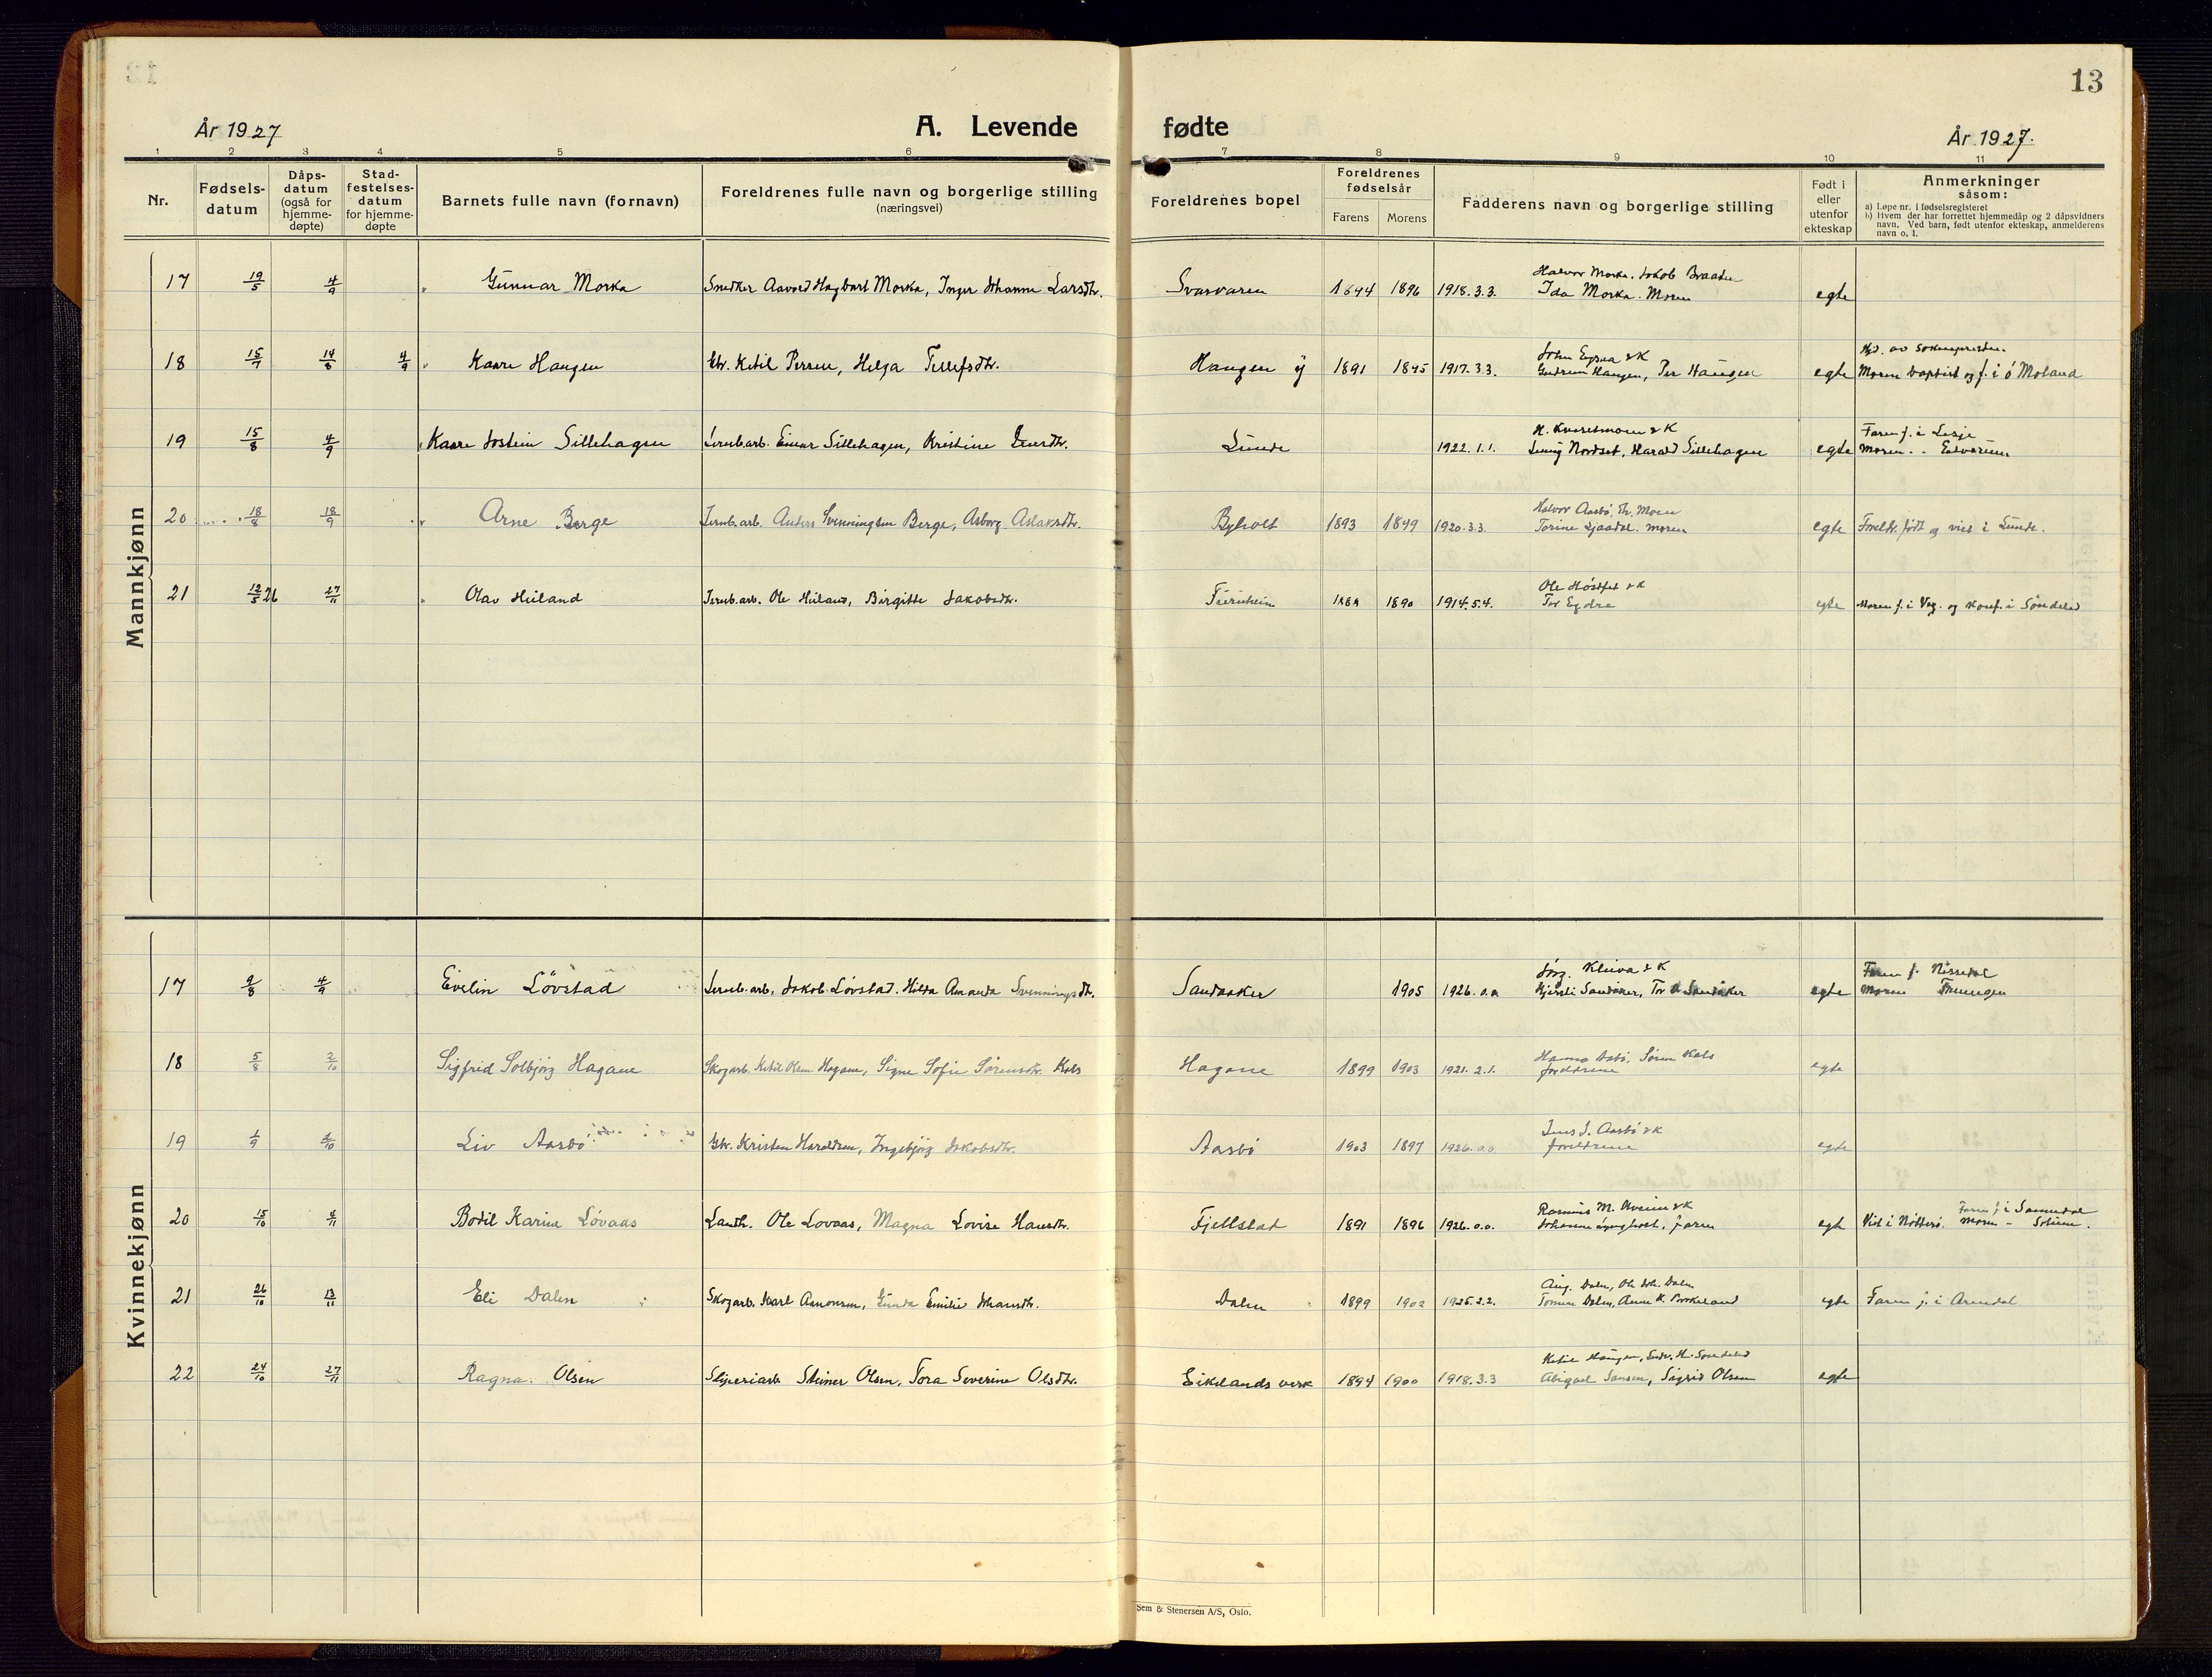 13
År 1927
A. Levende fødte
År 1927.
1 2 3 4 5 6 7 8 9 10 11
Nr.
Fødsels-
datum
Dåps-
datum
(også for
hjemme-
døpte)
Stad-
festelses-
datum
for hjemme-
døpte
Barnets fulle navn (fornavn)
Foreldrenes fulle navn og borgerlige stilling
(næringsvei)
Foreldrenes bopel
Foreldrenes
fødselsår
Farens Morens
Fadderens navn og borgerlige stilling
Født i
eller
utenfor
ekteskap
Anmerkninger
såsom:
a) Løpe nr. i fødselsregisteret
b) Hvem der har forrettet hjemmedåp og 2 dåpsvidners
navn. Ved barn, født utenfor ekteskap, anmelderens
navn o. l.
Mannkjønn
Halvor Morka. Jakob Braaten
17 19/5 4/9 Gunnar Morka Snedker Aavord Hagbart Morka, Inger Johanne Larsdtr. Svarvaren 1894 1896 1918.3.3. Ida Morka. Moren egte
18 15/7 14/8 4/9 Kaare Haugen Gbr. Ketil Persen, Helga Tellefsdtr. Haugen y 1891 1895 1917.3.3. Gudrun Haugen, Per Haugen egte Moren baptist og f. i ö Moland
H. Kvaretmoen & K Faren f. i Lesje
19 15/8 4/9 Kaare Jostein Sillehagen Jernb.arb. Einar Sillehagen, Kristine Jensdtr. Lunde 1922.1.1. Nordset, Harald Sillehagen egte Moren - - Elverum
Halvor Aasbø, Th. Moen
20 18/8 18/9 Arne Berge Jernb.arb. Anders Svenningsen Berge, Asborg Aslaksdtr. Byholt 1893 1899 1920.3.3. Torine Ljaadal. moren egte Foreldr. født og viet i Lunde.
Ole Höstfet & K
21 12/5 26 27/11 Olav Huland Jernb.arb. Ole Huland, Birgitte Jakobsdtr. 1890 1914.5.4. Tor Egdra egte Moren f. i Veg. og konf. i Söndeled
Kvinnekjønn
Jörg. Kleiva & K Faren f. Nissedal
17 9/8 4/9 Evelin Lövstad Jernb.arb. Jakob Lövstad. Hilda Amanda Svenningsdtr. Sandaaker 1905 1926.0.0 Kjersti Sandåker, Tor Sandåker egte Moren
18 5/8 2/10 Sigfrid Solbjörg Hagane Skogarb. Ketil Olsen Hagane, Signe Sofie Sörensdtr. Kols Hagane 1899 1903 1921.2.1. foreldrene egte
Jens J. Aasbö & K
19 1/9 2/10 Liv Aasbö Gbr. Kristen Haraldsen, Ingebjörg Jakobsdtr. Aasbö 1903 1897 1926.0.0 foreldrene egte
20 15/10 4/11 Bodil Karine Lövaas Landh. Ole Lovaas, Magna Lovise Hansdtr. Fjellstad 1891 1896 1926.0.0. Johanne Lyngtveit, faren egte Viet i Nötterö. Moren - Solum.
Aug. Dalen, Ole Joh. Dalen
21 26/10 13/11 Eli Dalen Skogarb. Karl Aanonsen, Gunda Emilie Johansdtr. Dalen 1899 1902 1925.2.2. Tomine Dalen, Anne K. Brokeland egte Faren f. i Arendal
22 24/10 27/11 Ragna Olsen Sliperiarb Steiner Olsen, Tora Severine Olsdtr. Eikelands verk 1894 1900 1918.3.3 Abigael Jansen, Sigrid Olsen egte
Sem & Stenersen A/S, Oslo.